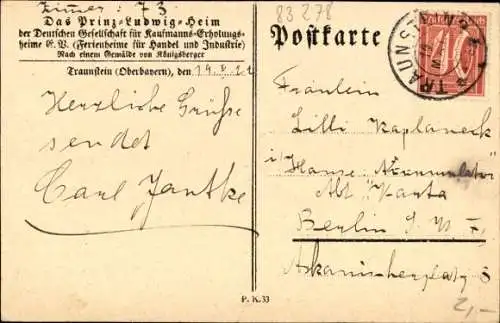 Zimmer: 73
Das Prinz-Ludwig-Heim
der Deutschen Gesellschaft für Kaufmanns-Erholungs-
heime E. V. (Ferienheime für Handel und Industrie)
Nach einem Gemälde von Königsberger
Traunstein (Oberbayern), den
Herzliche Grüsse
sendet
Carl Jantke
P. K. 33
83278
Postkarte
TRAUNSTEIN
Fräulein
Lilli Kaplaneck
i/ Hause
Abt
Berlin S.W.
Askanischerplatz 3
2,-